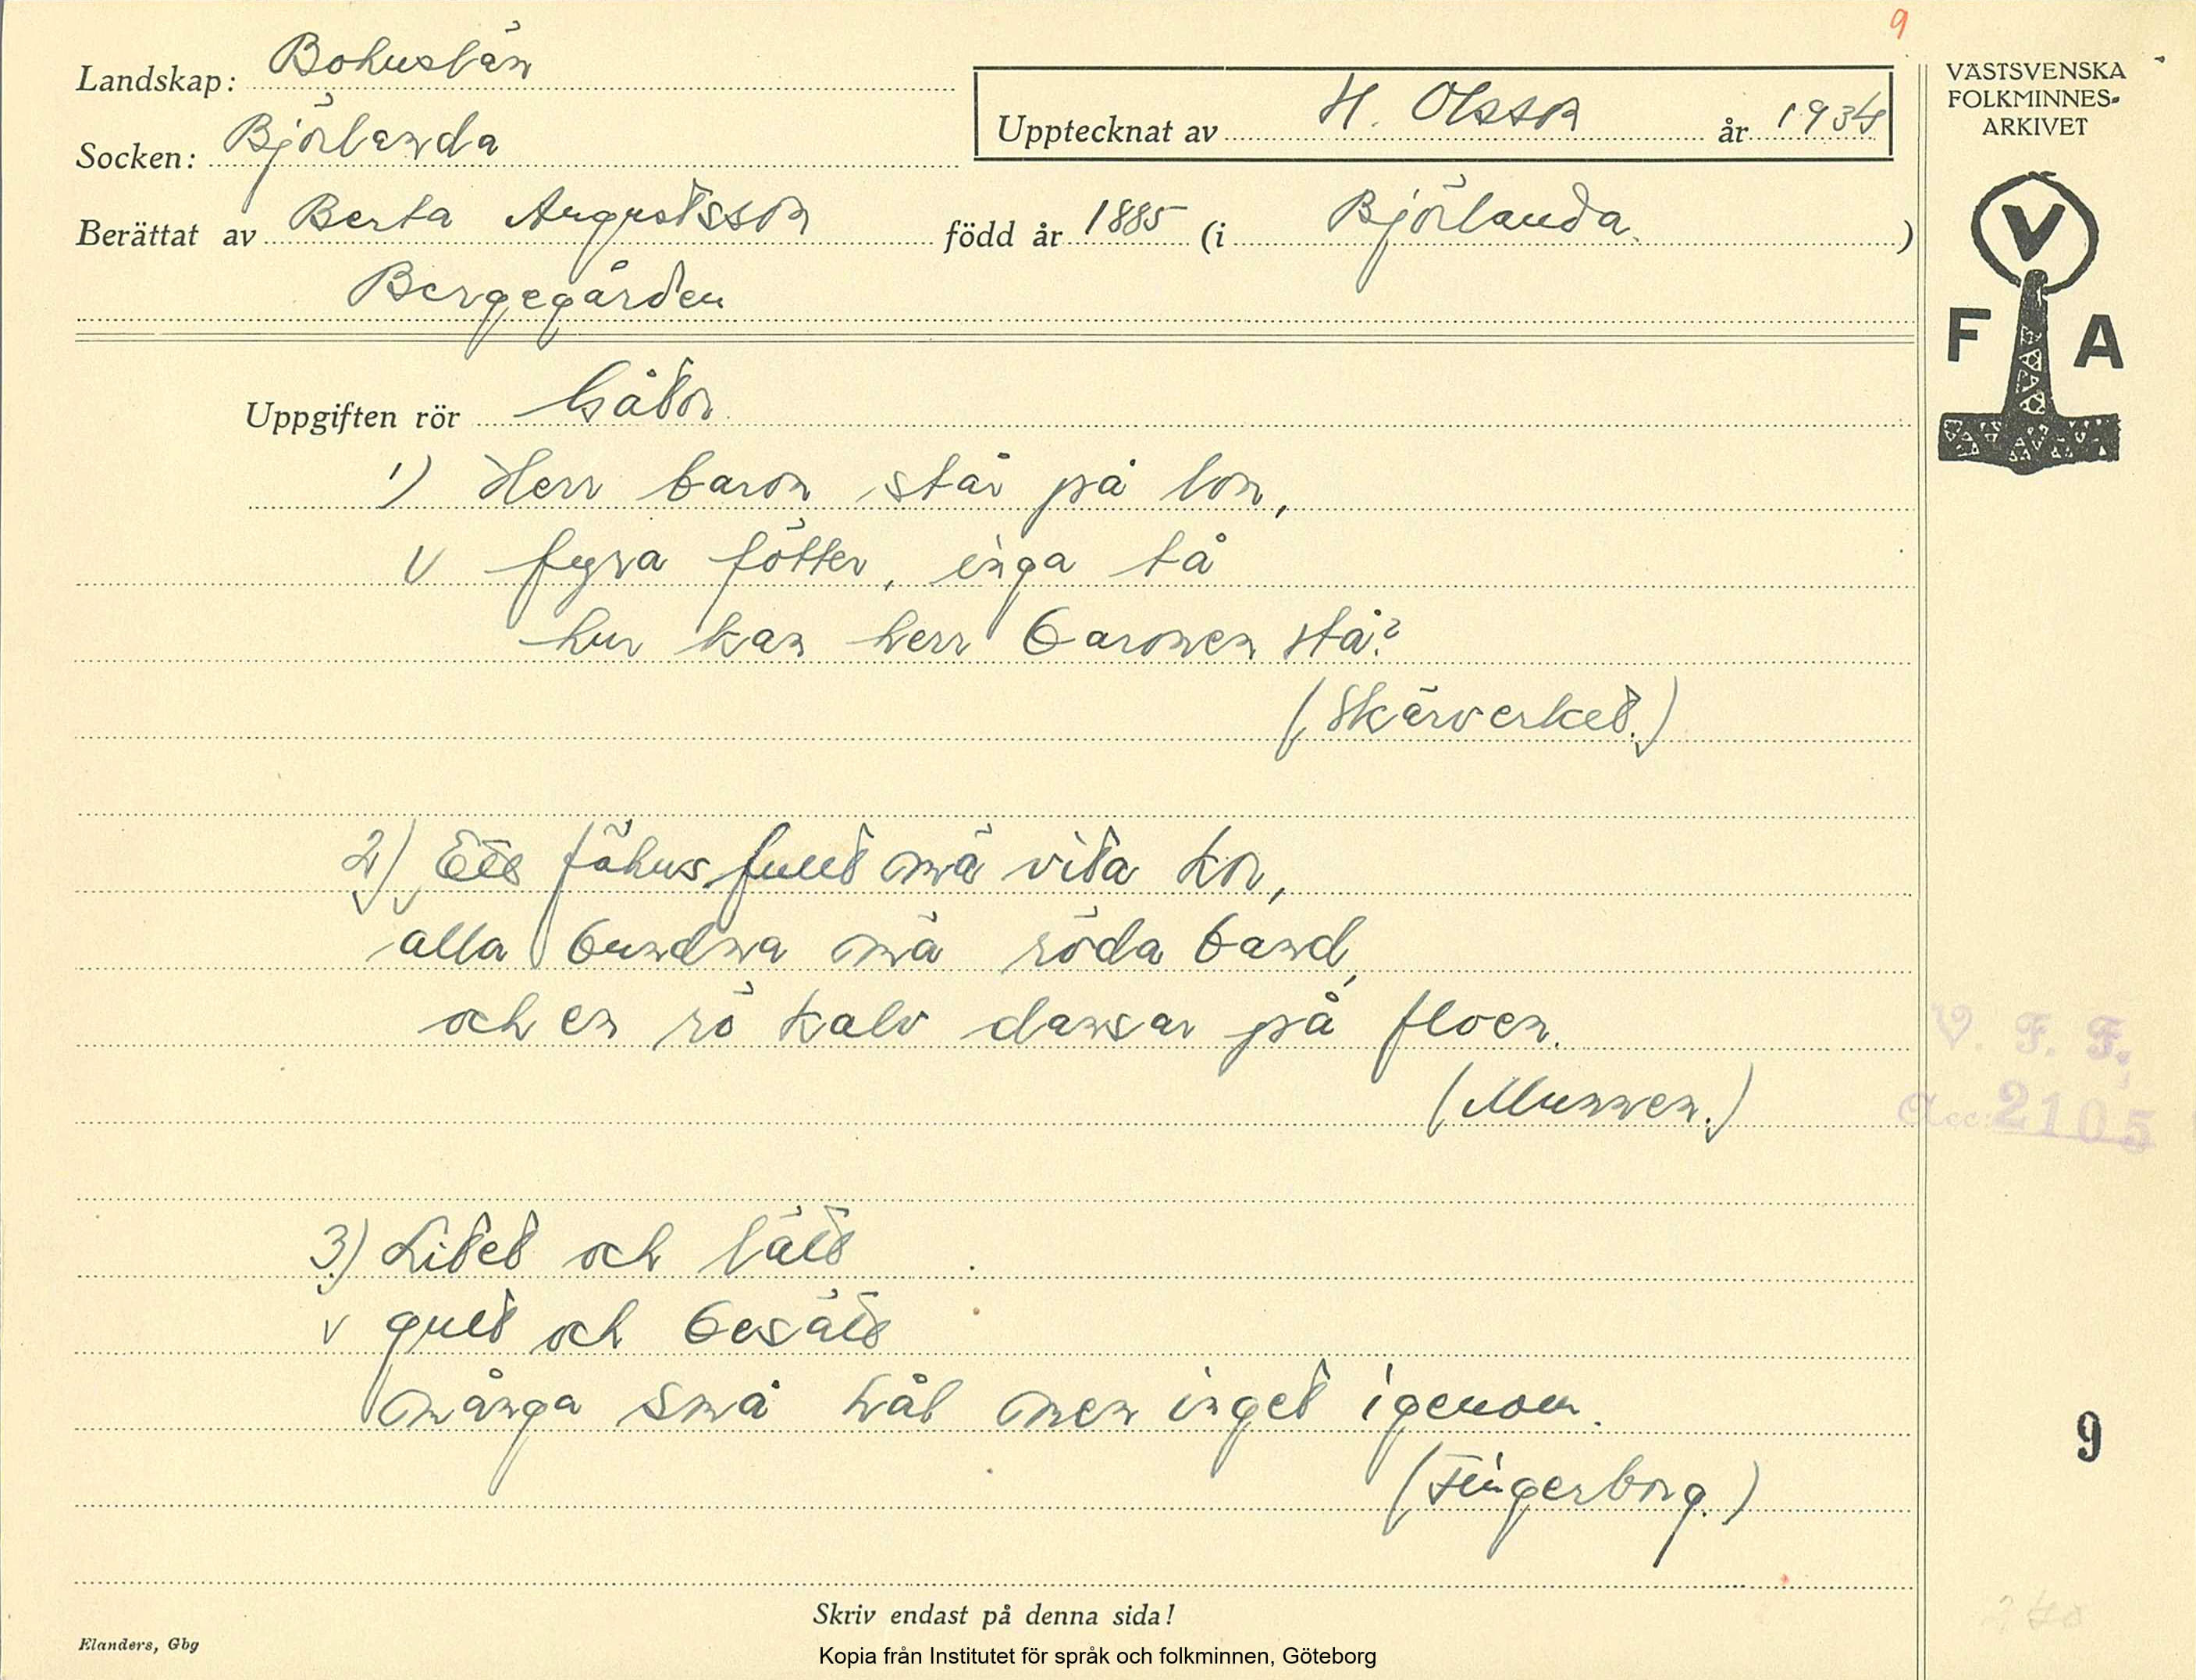 9
Landskap: Bohuslän
Socken: Björlanda
Upptecknat av H. Olsson år 1934
Berättat av Berta Augustsson född år 1885 (i Björlanda.)
Bergegården
VÄSTSVENSKA
FOLKMINNES-
ARKIVET
V
F A
Uppgiften rör Gåtor.
1) Herr baron står på lon,
V fyra fötter, inga tå
hur kan herr baronen stå?
(Skärverket.)
2) Ett fähus fullt mä vita kor,
alla bundna mä röda band,
och en rö kalv dansar på floen.
(Munnen.)
V. F. F.
Acc: 2105
3) Litet och lätt
v gult och besätt
många små hål men inget igenom.
(Fingerborg.)
9
Skriv endast på denna sida!
Elanders, Gbg
Kopia från Institutet för språk och folkminnen, Göteborg